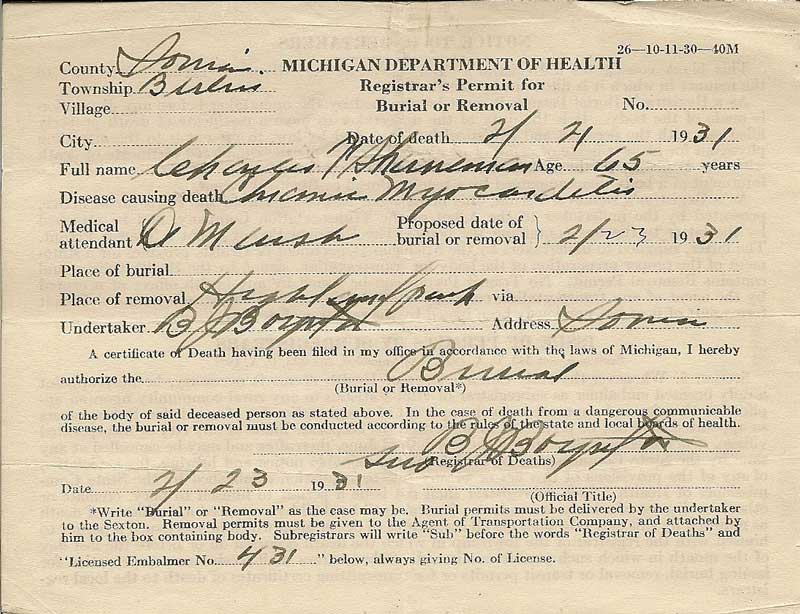 26-10-11-30-40M
County Ionia. MICHIGAN DEPARTMENT OF HEALTH
Township Berlin Registrar's Permit for
Village Burial or Removal No.
City Date of death 2/ 21 1931
Full name Charles Age 65 years
Disease causing death Chronic Myocarditis
Medical attendant Proposed date of burial or removal } 2/23 1931
Place of burial
Place of removal Highland park via
Undertaker B J Boynton Address Ionia
A certificate of Death having been filed in my office in accordance with the laws of Michigan, I hereby
authorize the Burial
(Burial or Removal*)
of the body of said deceased person as stated above. In the case of death from a dangerous communicable
disease, the burial or removal must be conducted according to the rules of the state and local boards of health.
B J Boynton
Sub (Registrar of Deaths)
Date 2/ 23 1931
(Official Title)
*Write "Burial" or "Removal" as the case may be. Burial permits must be delivered by the undertaker
to the Sexton. Removal permits must be given to the Agent of Transportation Company, and attached by
him to the box containing body. Subregistrars will write "Sub" before the words "Registrar of Deaths" and
"Licensed Embalmer No. 431 " below, always giving No. of License.